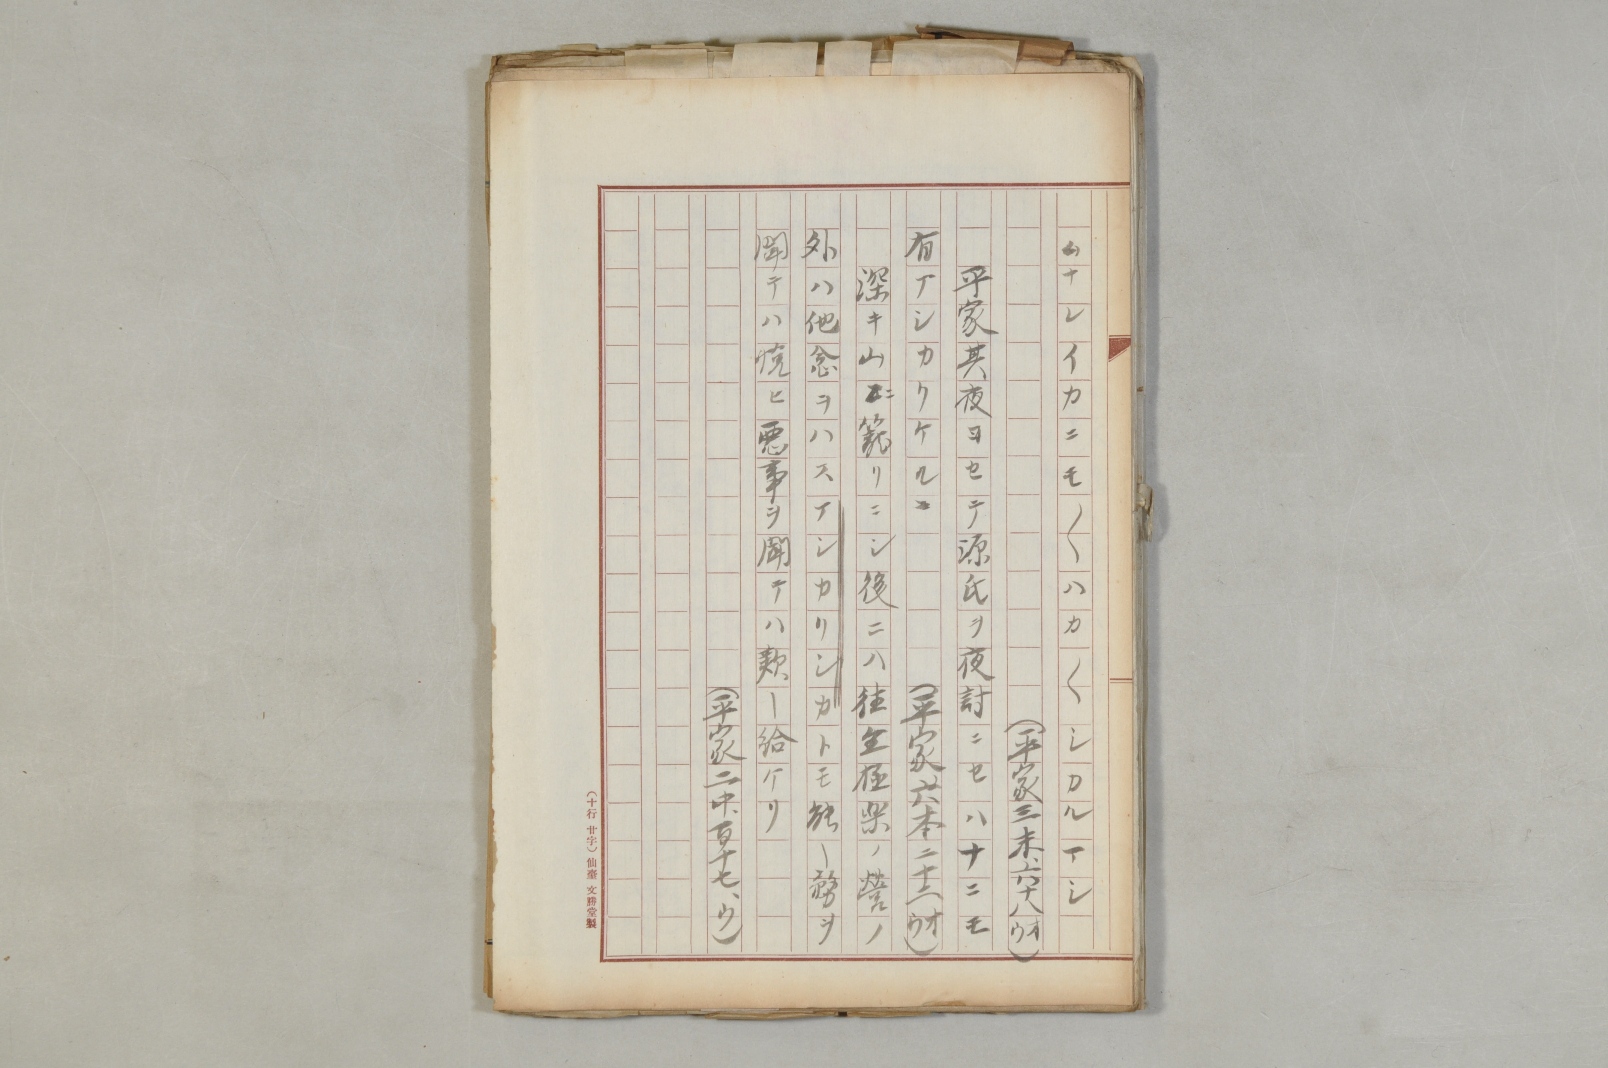 ムナレイカニモ〳〵ハカ〳〵シカルアシ
(平家三末、六十八ウオ)
平家其夜ヨセテ源氏ヲ夜討ニセハナニモ
有アシカリケルニ
(平家六本二十二ウオ)
深キ山ニ籠リニシ後ニハ往生極楽ノ営ノ
外ハ他念ヲハスアシカリシカトモ能ー務ヲ
聞テハ悦ヒ悪事ヲ聞テハ歎ー給ケリ
(平家二中、百十七、ウ)
(十行 廿字)仙臺 文勝堂製